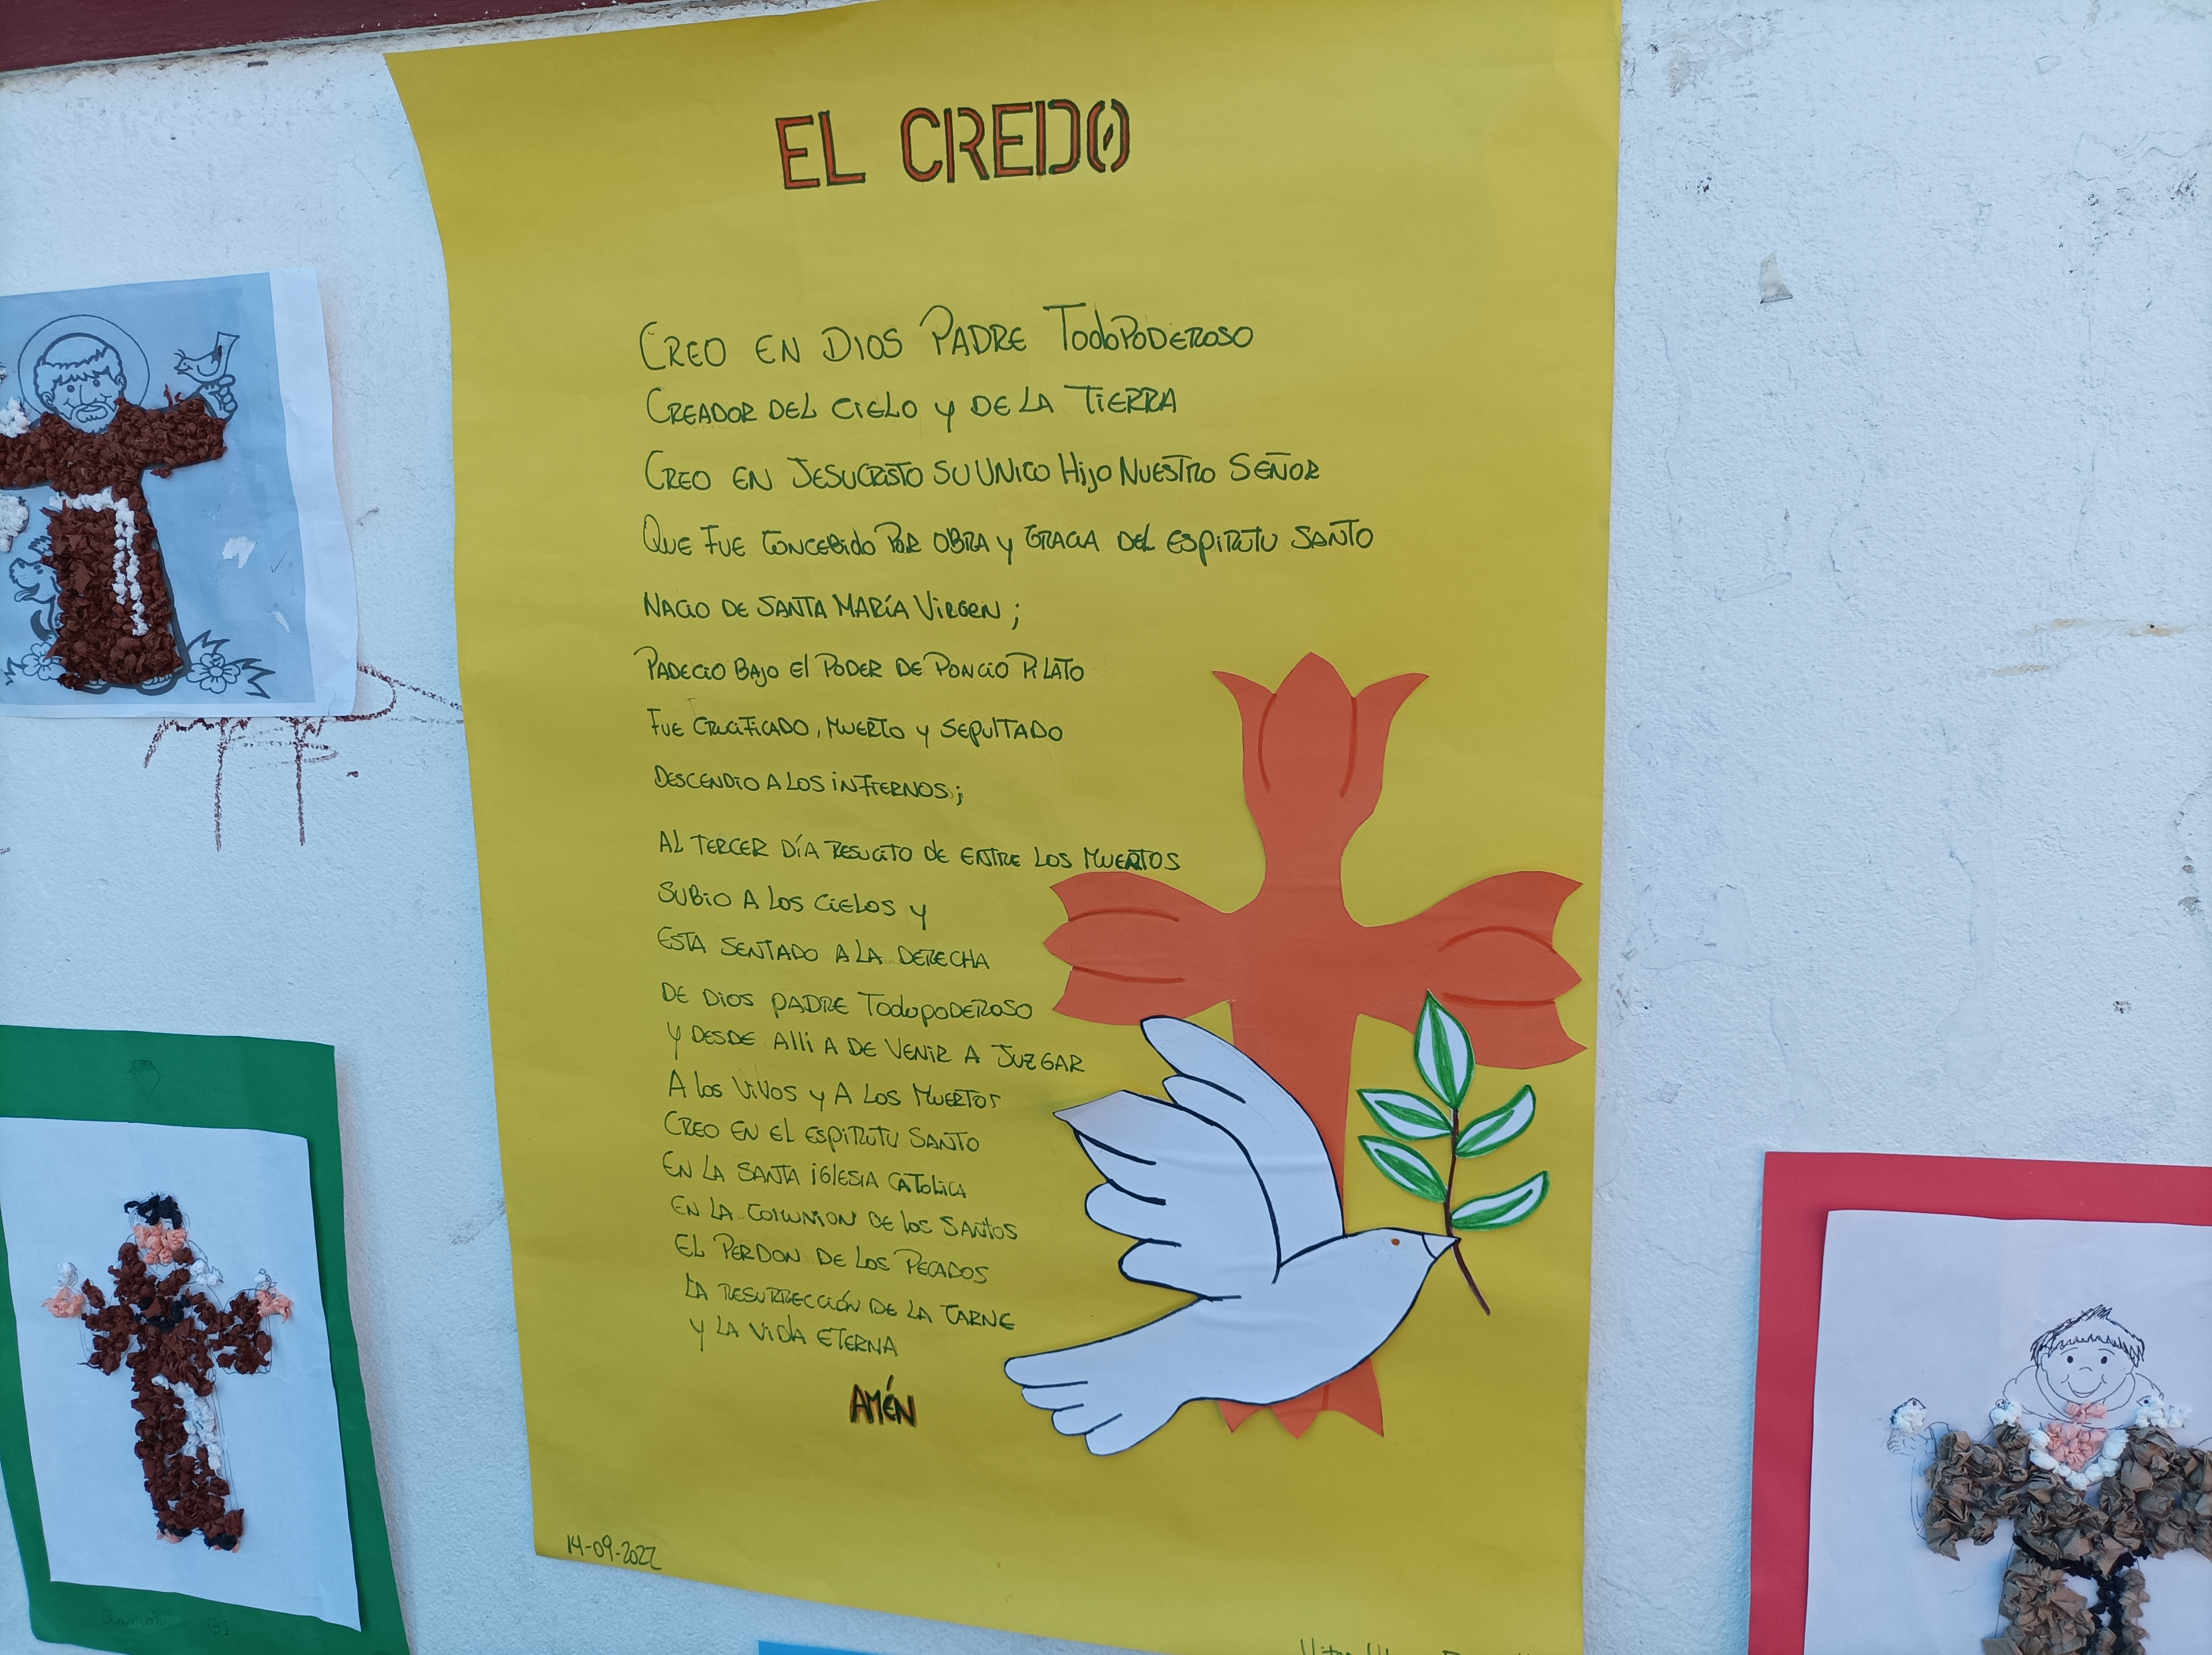 EL CREDO
CREO EN DIOS PADRE TodoPODEROSO
CREADOR DEL CIELO Y DE LA TIERRA
CREO EN JESUCRISTO SU UNICO HIJO NUESTRO SEÑOR
QUE FUE CONCEBIDO POR OBRA Y GRACIA DEL ESPIRITU SANTO
NACIO DE SANTA MARÍA VIRGEN ;
PADECIO BAJO El PODER DE PONCIO PILATO
FUE CRUCIFICADO, MUERTO Y SEPULTADO
DESCENDIO A LOS INFIERNOS;
AL TERCER DÍA RESUCITO DE ENTRE LOS MUERTOS
SUBIO A LOS CIELOS Y
ESTA SENTADO A LA DERECHA
DE DIOS PADRE TodopODEROSO
Y DESDE Alli A DE VENIR A JUZGAR
A los VIVOS Y A LOS MUERTOS
CREO EN EL ESPIRITU SANTO
EN LA SANTA IGLESIA CATOLICA
EN LA COMUNION DE los SANTOS
EL PERDON DE LOS PECADOS
LA RESURRECCIÓN DE LA CARNE
Y LA VIDA ETERNA
AMÉN
14-09-2022